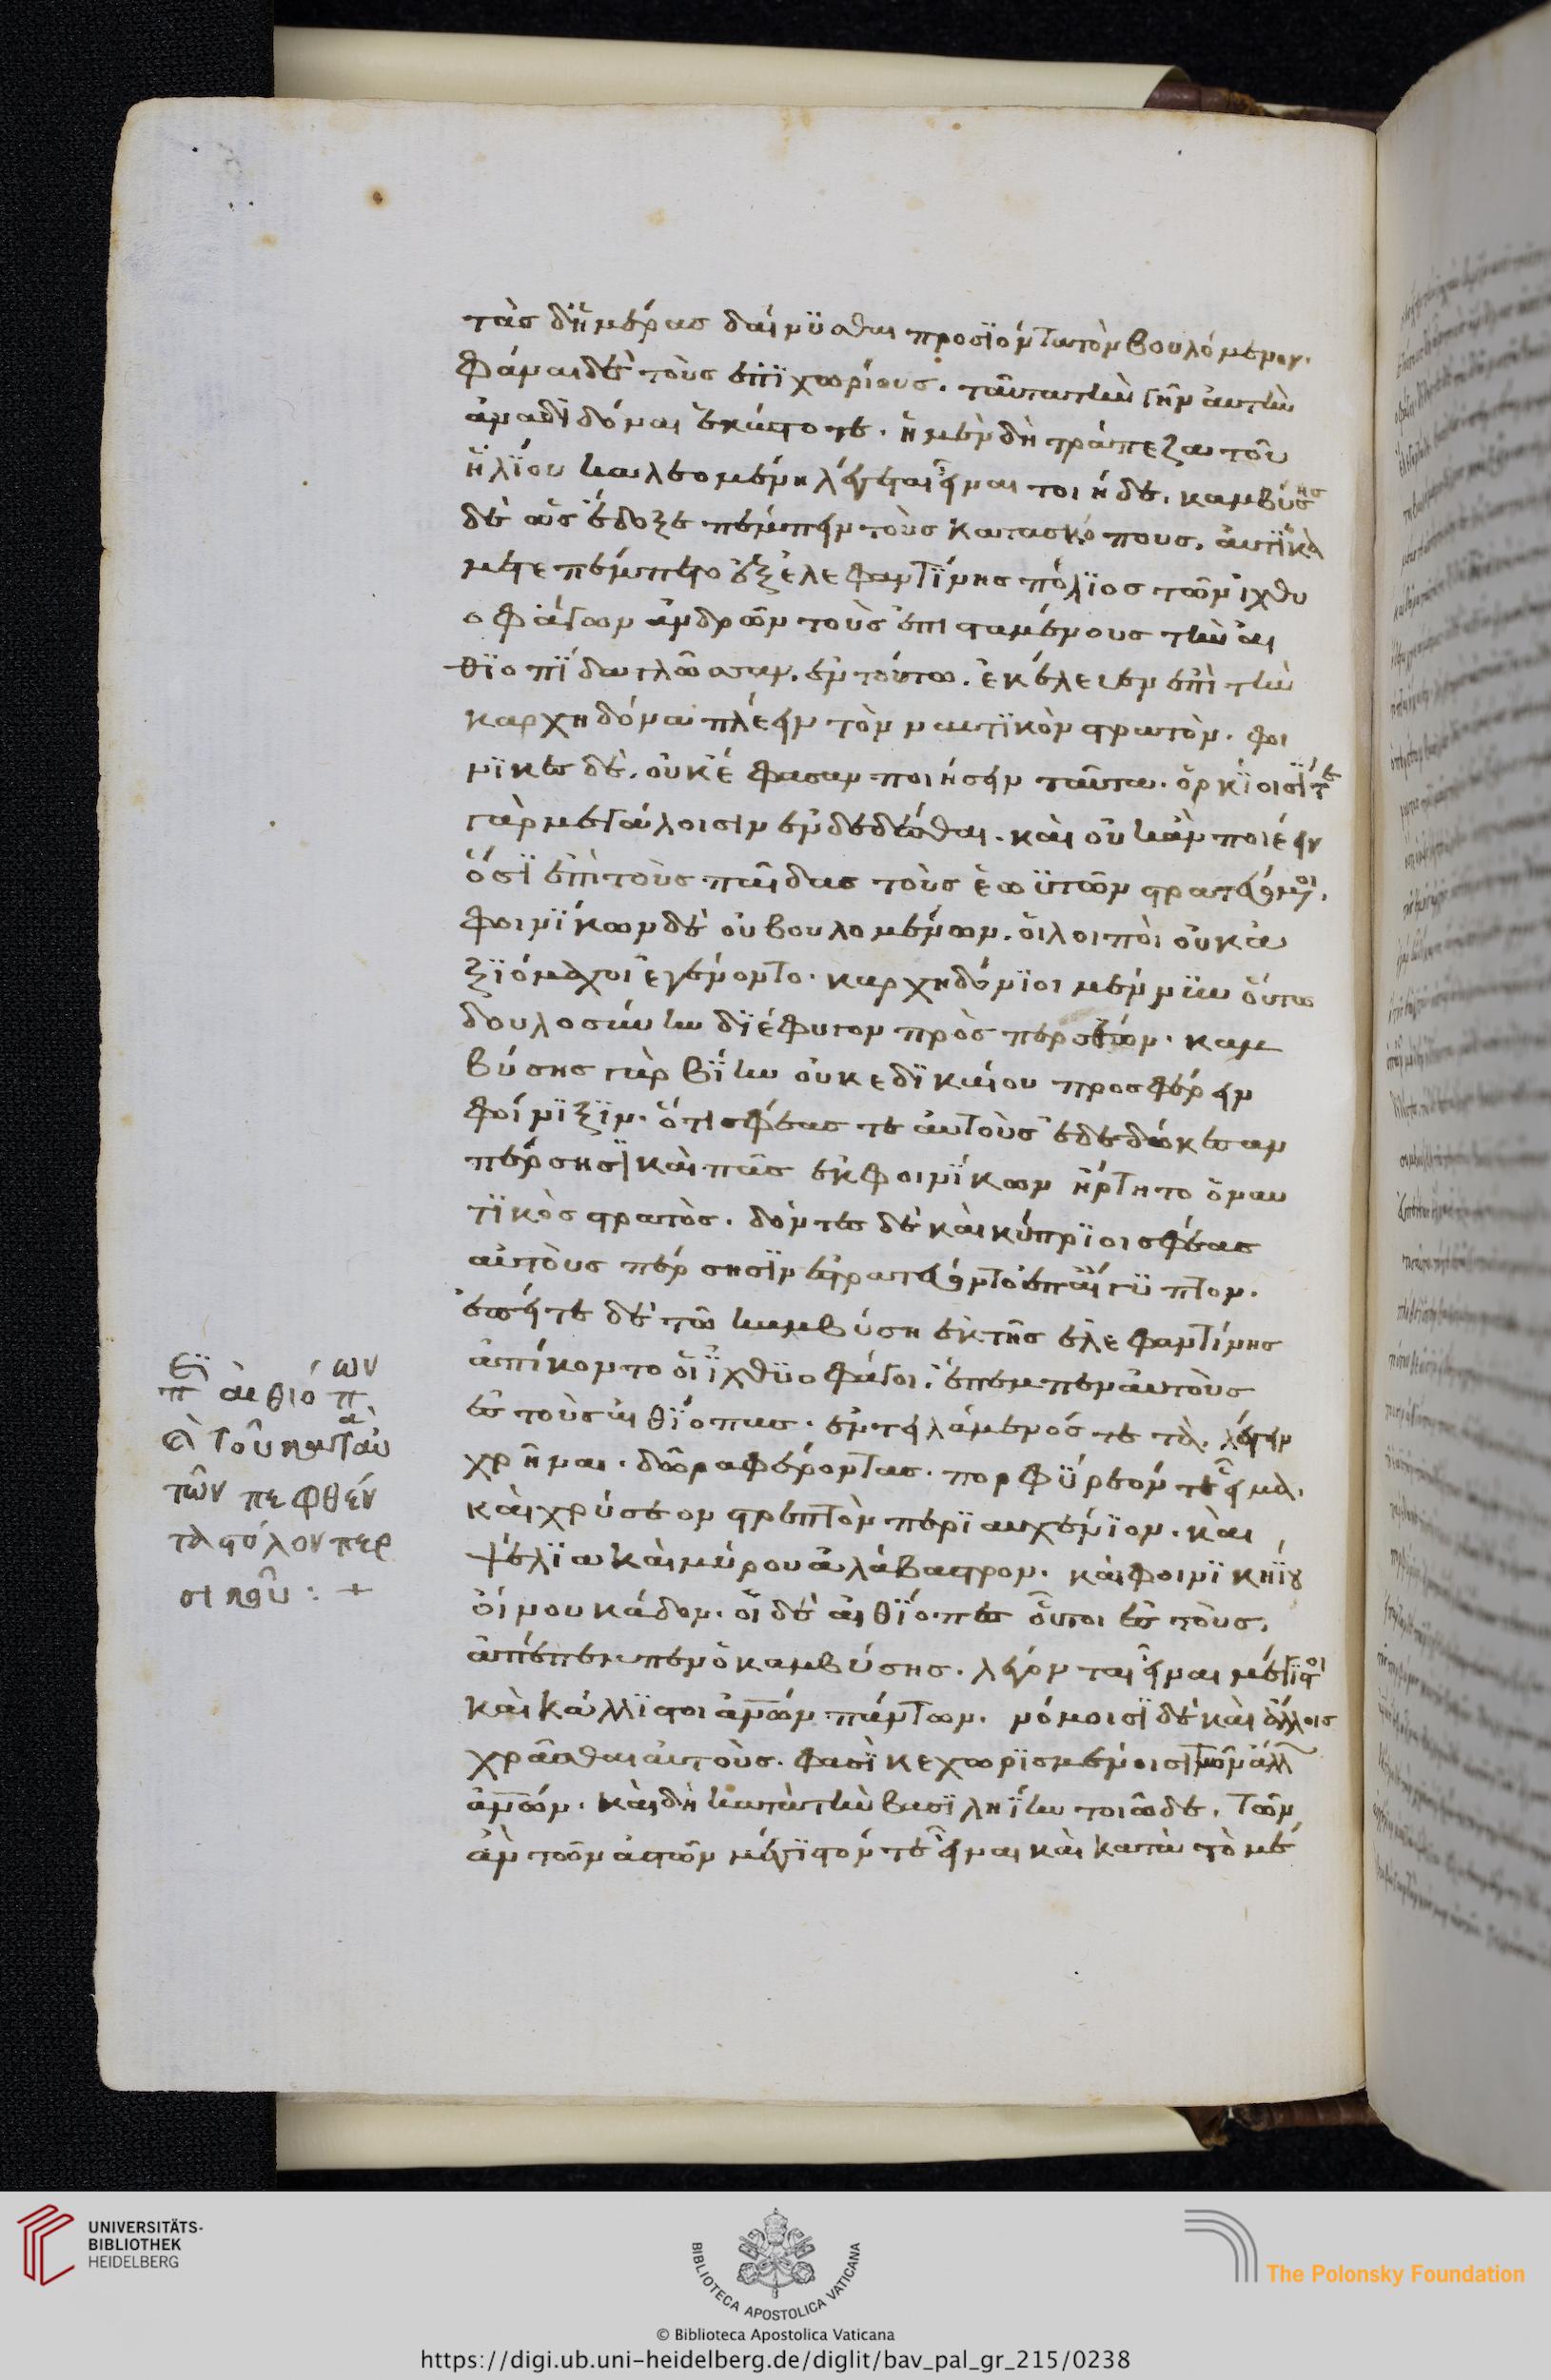 τὰς δ' ἡμέρας δαίνυσθαι προσϊόντα τὸν βουλόμενον.
φάναι δὲ τοὺς ἐπϊχωρίους. ταῦτα τὴν γῆν ἀυτὴν
ἀναδϊδόναι ἑκάστοτε. ἡ μὲν δὴ τράπεζα τοῦ
ἡλίου καλεομένη λέγεται εἶναι τοιήδε. καμβύσης
δὲ ὡς ἔδοξε πέμπειν τοὺς κατασκόπους. ἀυτϊκα
μετεπέμπετο ἐξ ἐλεφαντϊνης πόλϊος τῶν ϊχθυ
οφάγων ἀνδρῶν τοὺς ἐπισταμένους τὴν ἀι
θϊοπίδα γλῶσσαν. ἐν τούτω. ἐκέλευεν ἐπὶ τὴν
καρχηδόνα πλέειν τὸν ναυτϊκὸν στρατόν. φοι
νϊκες δὲ. οὐκ ἔφασαν ποιήσειν ταῦτα. ὁρκίοισί τε
γὰρ μεγάλοισιν ἐνδεδέσθαι. καὶ οὐκ ἂν ποιέειν
ὅσϊ ἐπὶ τοὺς παῖδας τοὺς ἑωϋτῶν στρατευόμενοι.
φοινίκων δὲ οὐ βουλομένων. ὁι λοιποὶ οὐκ ἀ
ξϊόμαχοι ἐγένοντο. καρχηδόνϊοι μέν νυν οὕτω
δουλοσύνην διέφυγον πρὸς περσέων. καμ
βύσης γὰρ βίην οὐκ ἐδϊκαίου προσφέρειν
φοίνϊξϊν. ὅτι σφέας τε ἀυτοὺς ἐδεδώκεσαν
πέρσησϊ καὶ πᾶς ἐκ φοινϊκων ἤρτητο ὁ ναυ
τϊκὸς στρατός. δόντες δὲ καὶ κύπρϊοι σφέας
αὐτοὺς πέρσησϊν ἐστρατεύοντο ἐπ' ἄιγϋπτον.
ἐπεί τε δὲ τῶ καμβύση ἐκ τῆς ἐλεφαντίνης
ἀπίκοντο ὁι ϊχθϋοφάγοι. ἔπεμπεν ἀυτοὺς
ἐς τοὺς ἀιθίοπας. ἐντειλάμενός τε τὰ λέγειν
χρῆναι. δῶρα φέροντας. πορφύρεόν τε εἷμα.
καὶ χρύσεον στρεπτὸν περϊαυχένϊον. καὶ
ψέλϊα καὶ μύρου ἀλάβαστρον. καὶ φοινϊκηίου
ὄινου κάδον. ὁι δὲ ἀιθίοπες οὗτοι ἐς τοὺς.
ἀπέπεμπεν ὁ καμβύσης. λέγονται εἶναι μέγιστοι
καὶ κάλλϊστοι ἀνθρώπων πάντων. νόμοισϊ δὲ καὶ ἄλλοις
χρᾶσθαι ἀυτοὺς. φασϊ κεχωρϊσμένοισι τῶν ἄλλων
ἀνθρώπων. καὶ δὴ κατὰ τὴν βασϊληίην τοιῶδε. τὸν
ἂν τῶν ἀστῶν μέγϊστόν τε εἶναι καὶ κατὰ τὸ μέ
τῶν πεφθέν
UNIVERSITÄTS-
BIBLIOTHEK
HEIDELBERG
BIBLIOTECA APOSTOLICA VATICANA
The Polonsky Foundation
© Biblioteca Apostolica Vaticana
https://digi.ub.uni-heidelberg.de/diglit/bav_pal_gr_215/0238